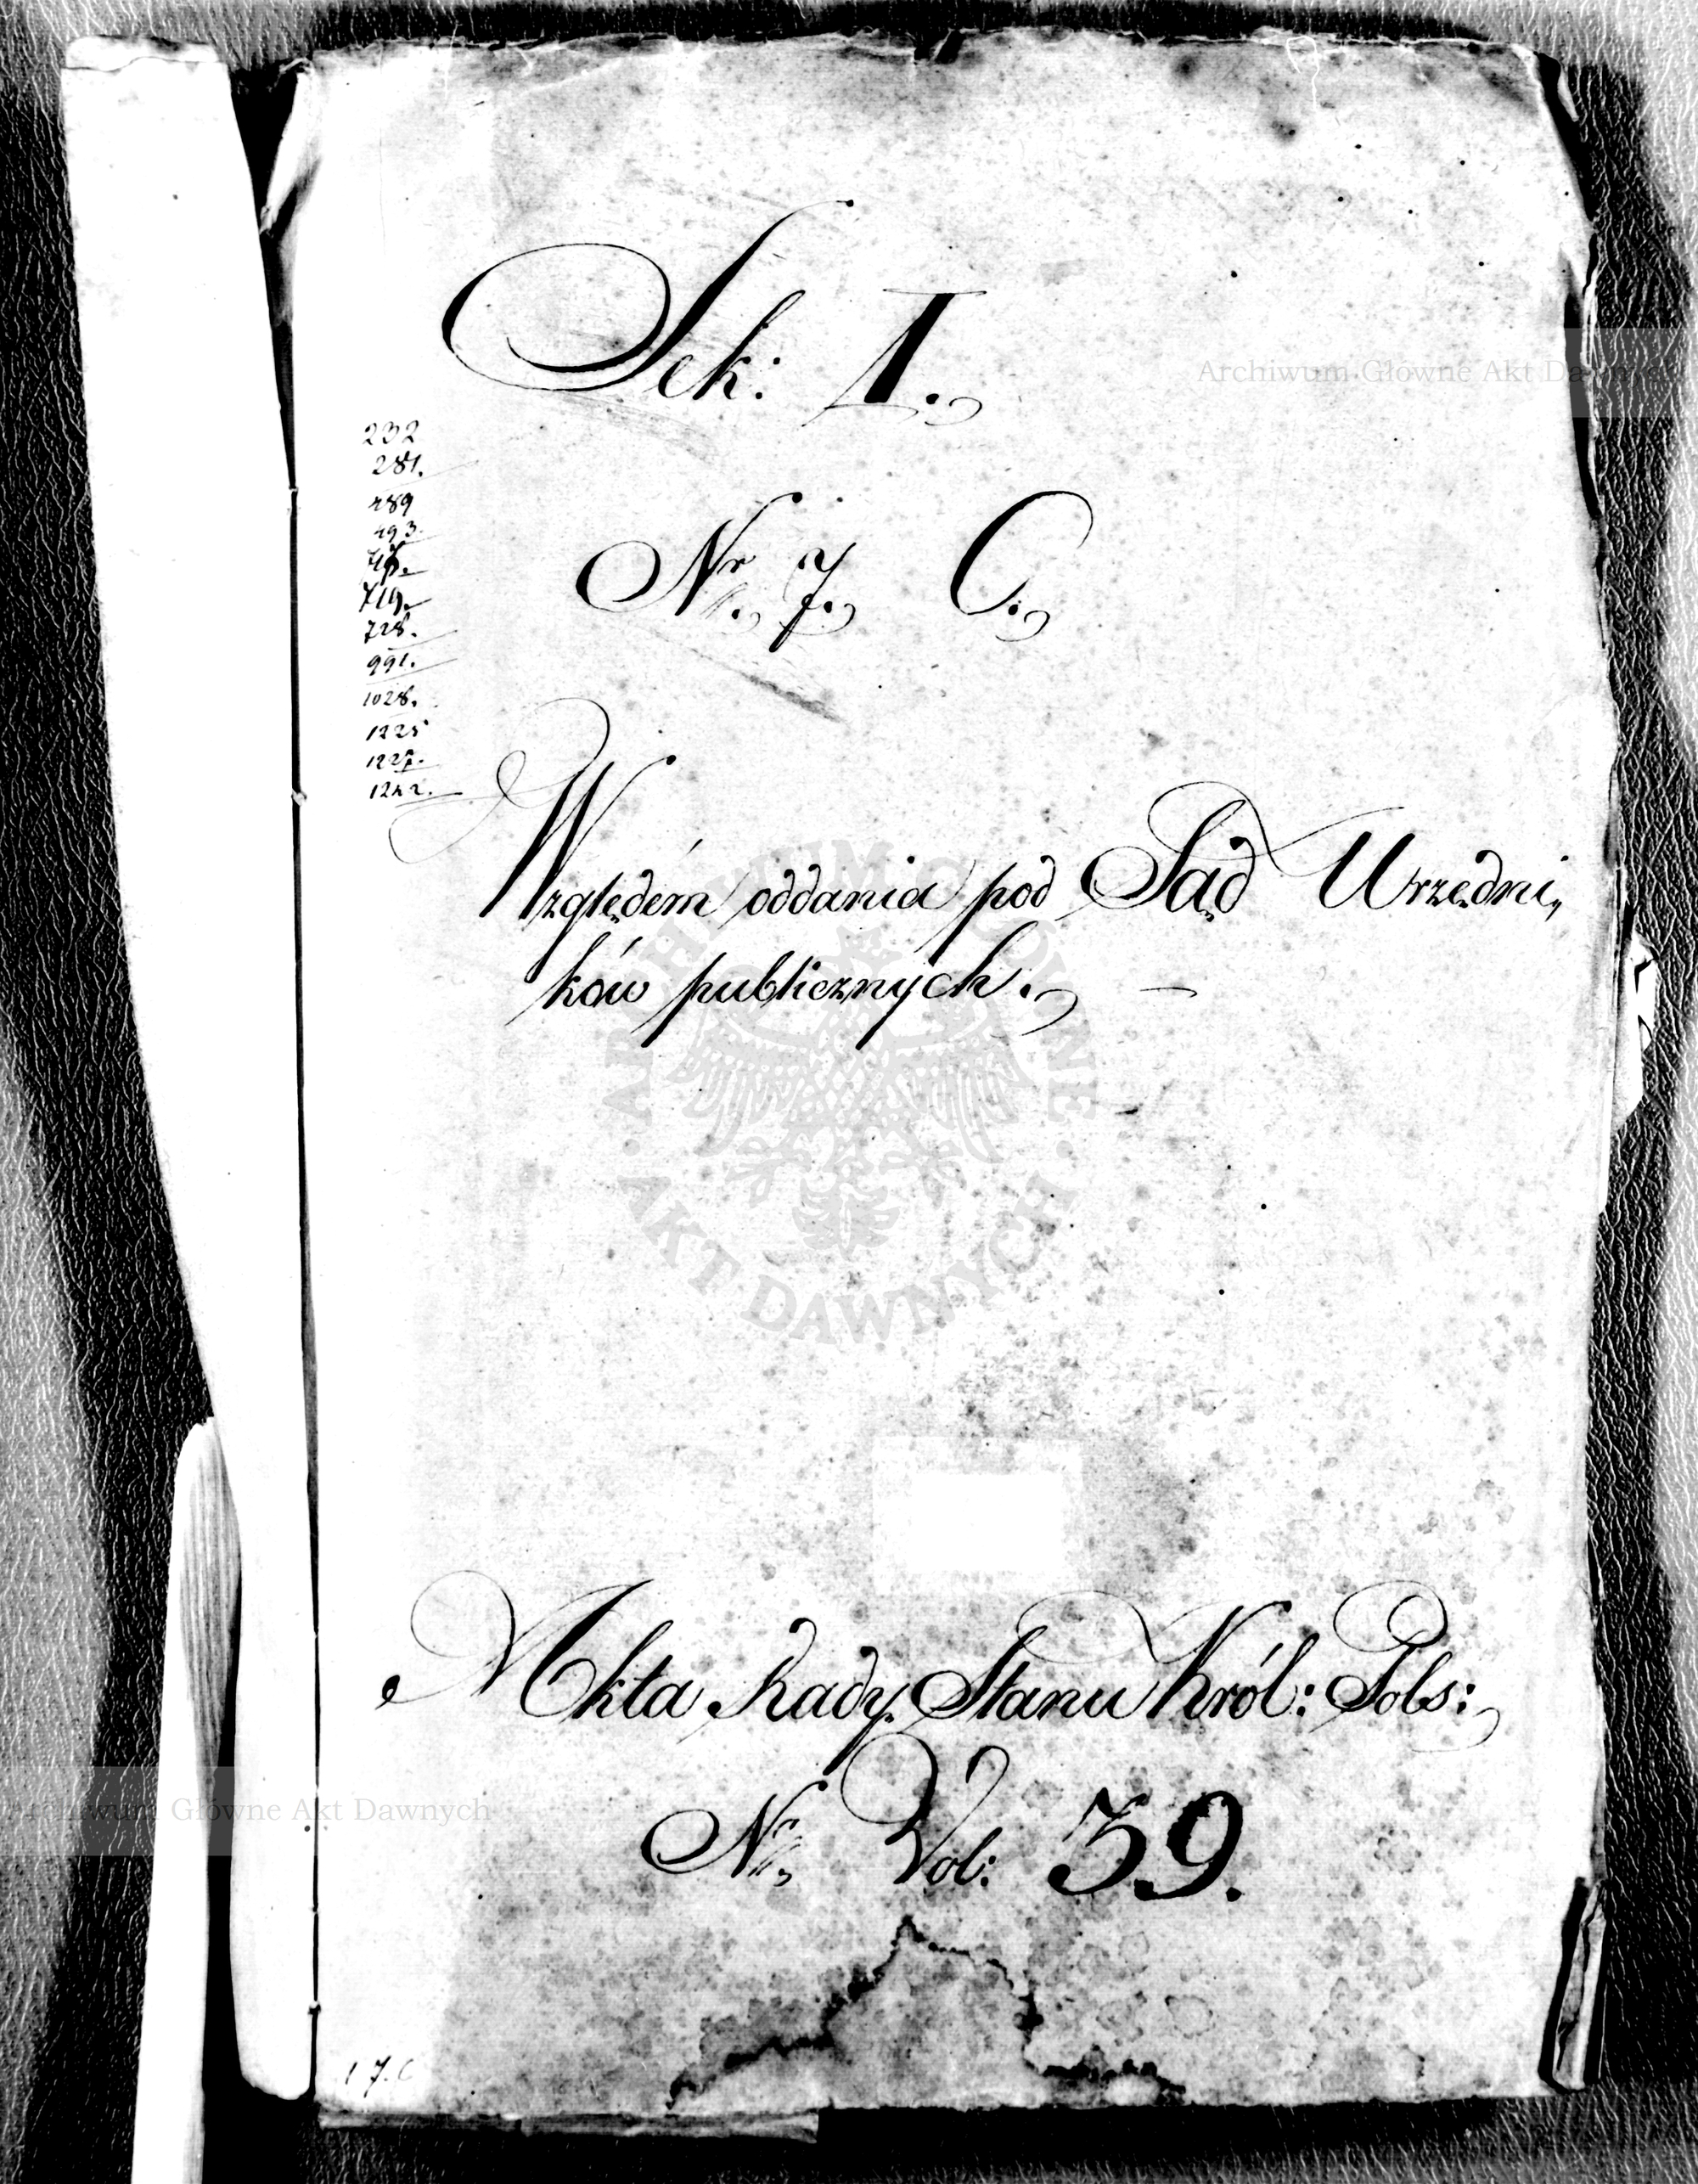 Sek: I.
232
281.
489
493.
719.
728.
991.
1028.
1225
1227.
1242.
Nr. 7. C.
Względém oddania pod Sąd Urzędni,
ków publicznych. —
Akta Rady Stanu Król: Pols:
No. Vol: 39.
1 7. C
Archiwum Główne Akt Dawnych
ARCHIWUM GŁÓWNE · AKT DAWNYCH ·
Archiwum Główne Akt Dawnych